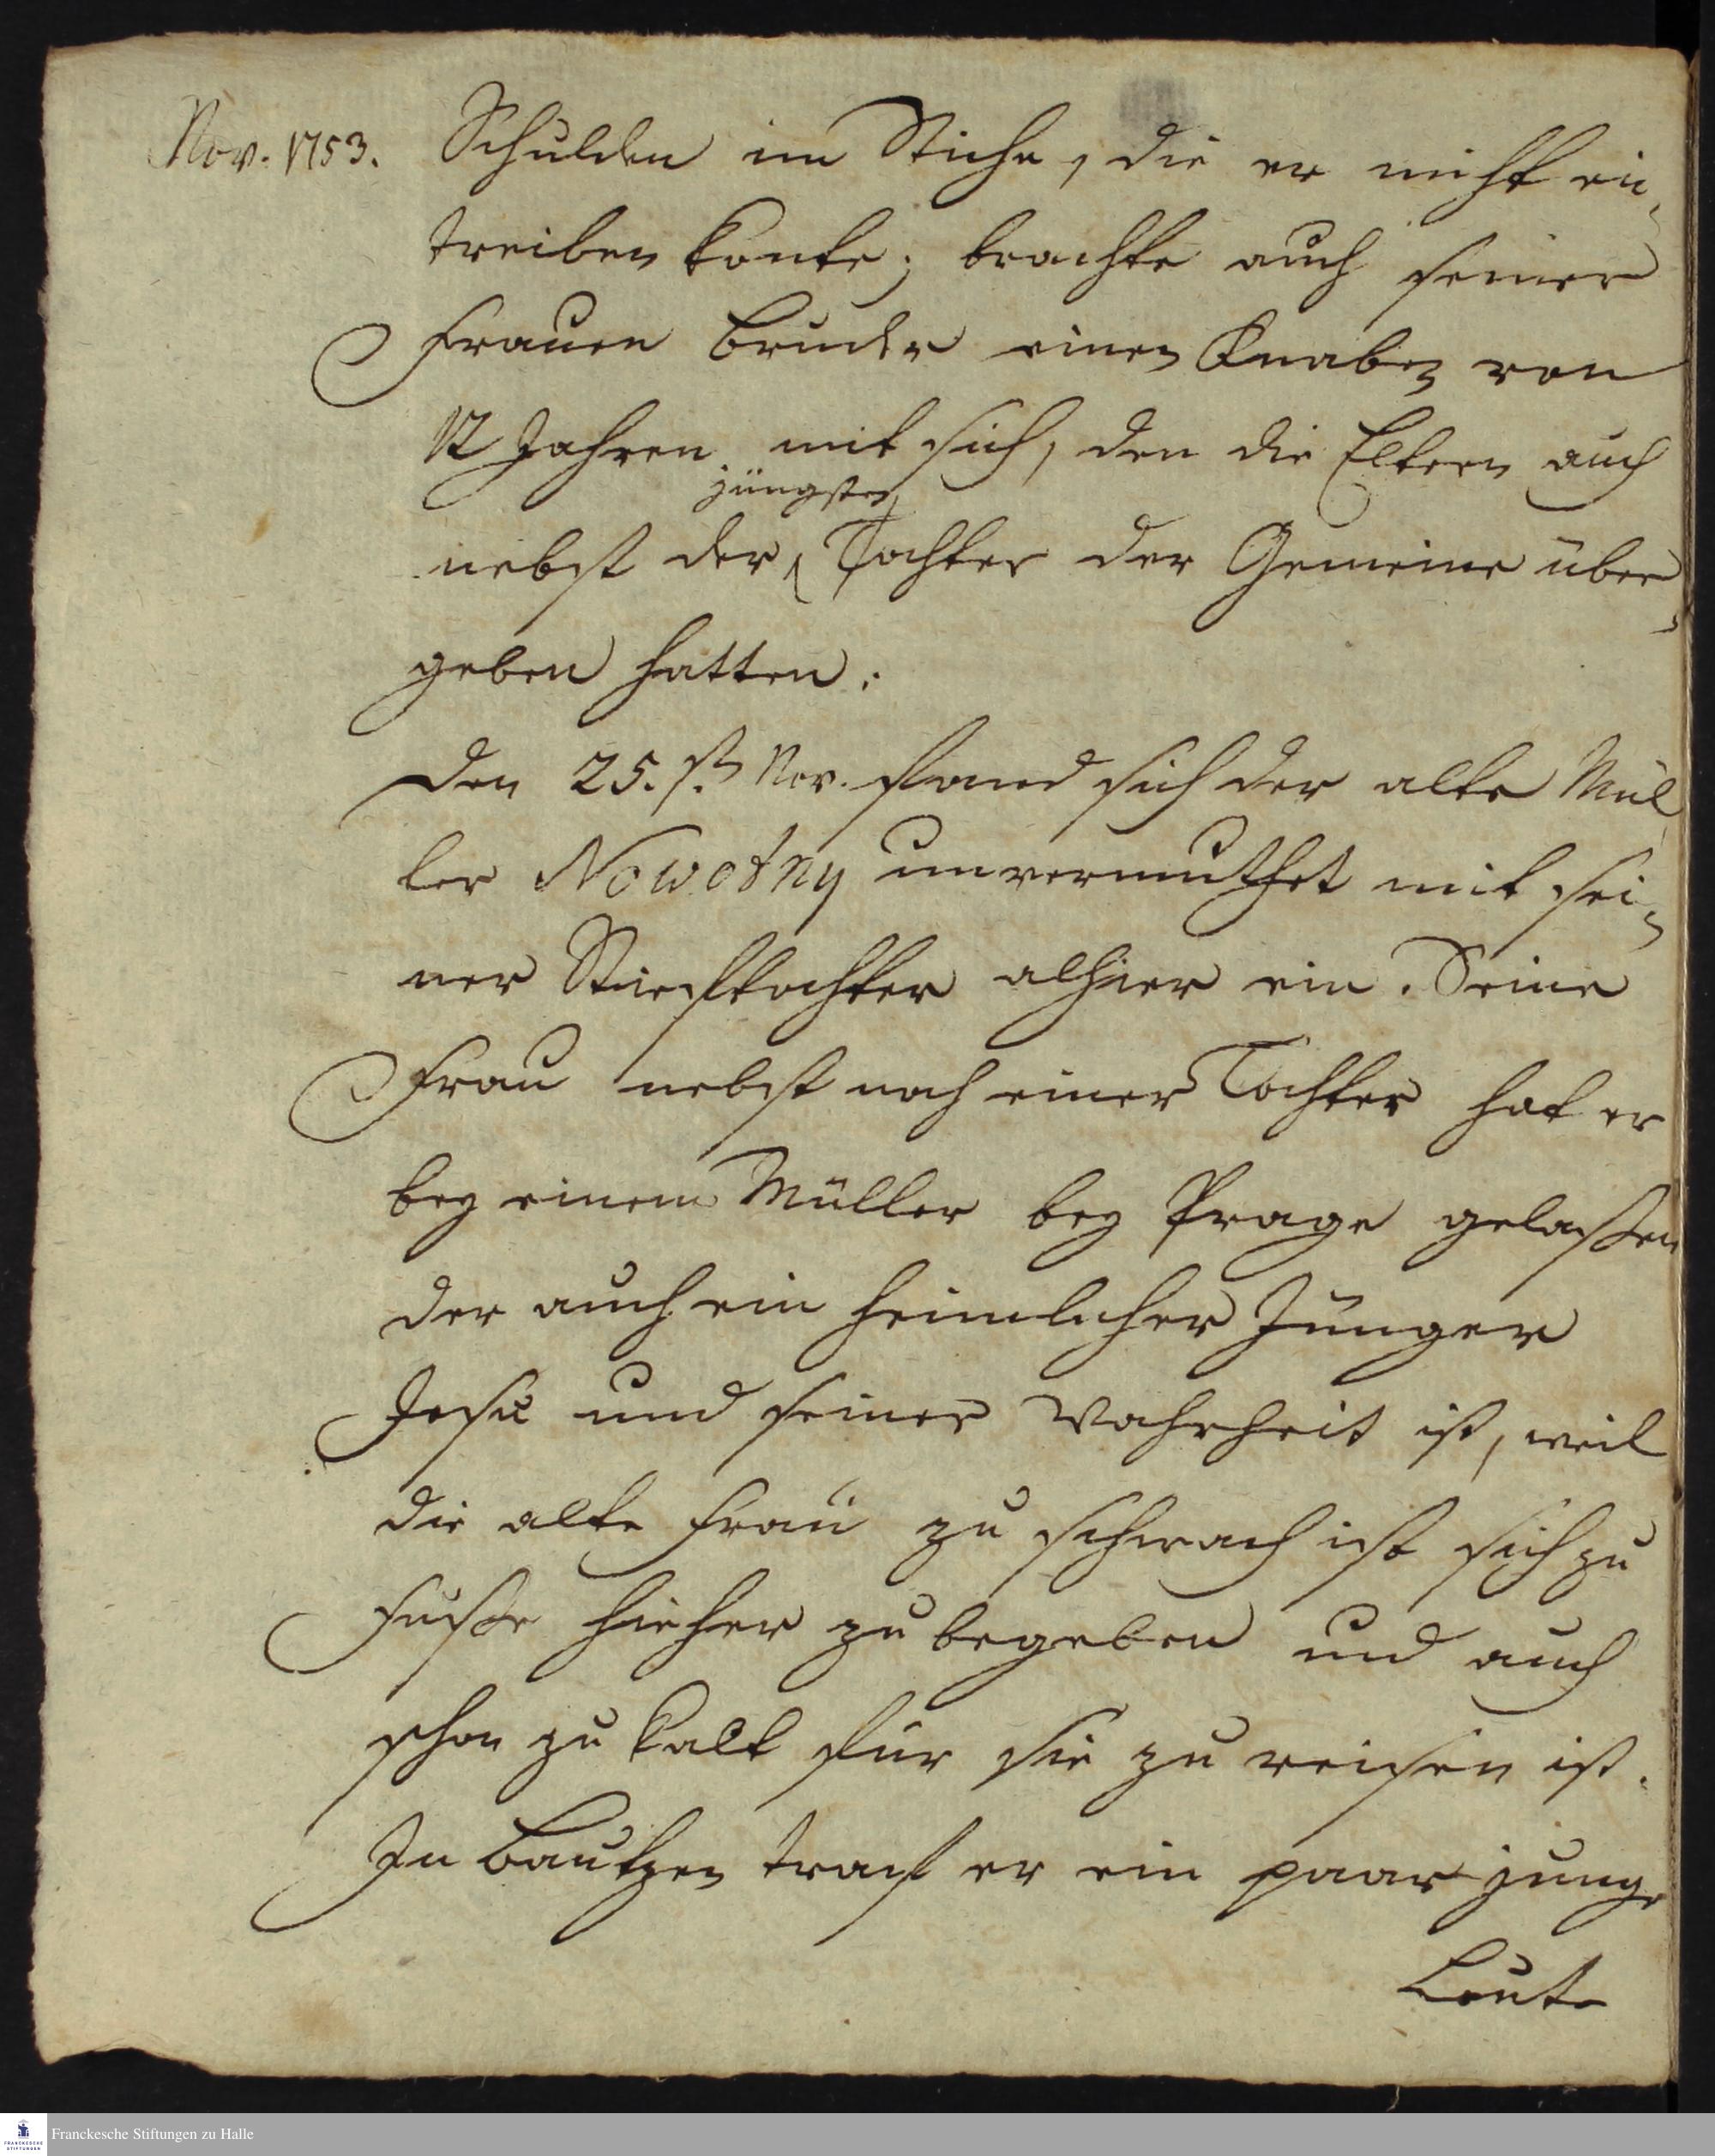 Nov. 1753.
Schulden im Stiche, die er nicht ein¬
treiben konte; brachte auch seiner
Frauen Bruder einen Knaben von
12 Jahren mit sich, den die Eltern auch
jüngsten
nebst der Tochter der Gemeine über¬
geben hatten.
Den 25.st. Nov. fand sich der alte Mül¬
ler Nowotny unvermuthet mit sei¬
ner Stieftochter alhier ein. Seine
Frau nebst noch einer Tochter hat er
bey einem Müller bey Prage gelaßen
der auch ein heimlicher Jünger
Jesu und seiner Wahrheit ist, weil
die alte Frau zu schwach ist sich zu
Fuße hieher zu begeben und auch
schon zu kalt für sie zu reisen ist.
In Bautzen traf er ein paar junge
Leute
FRANCKESCHE
STIFTUNGEN
Franckesche Stiftungen zu Halle